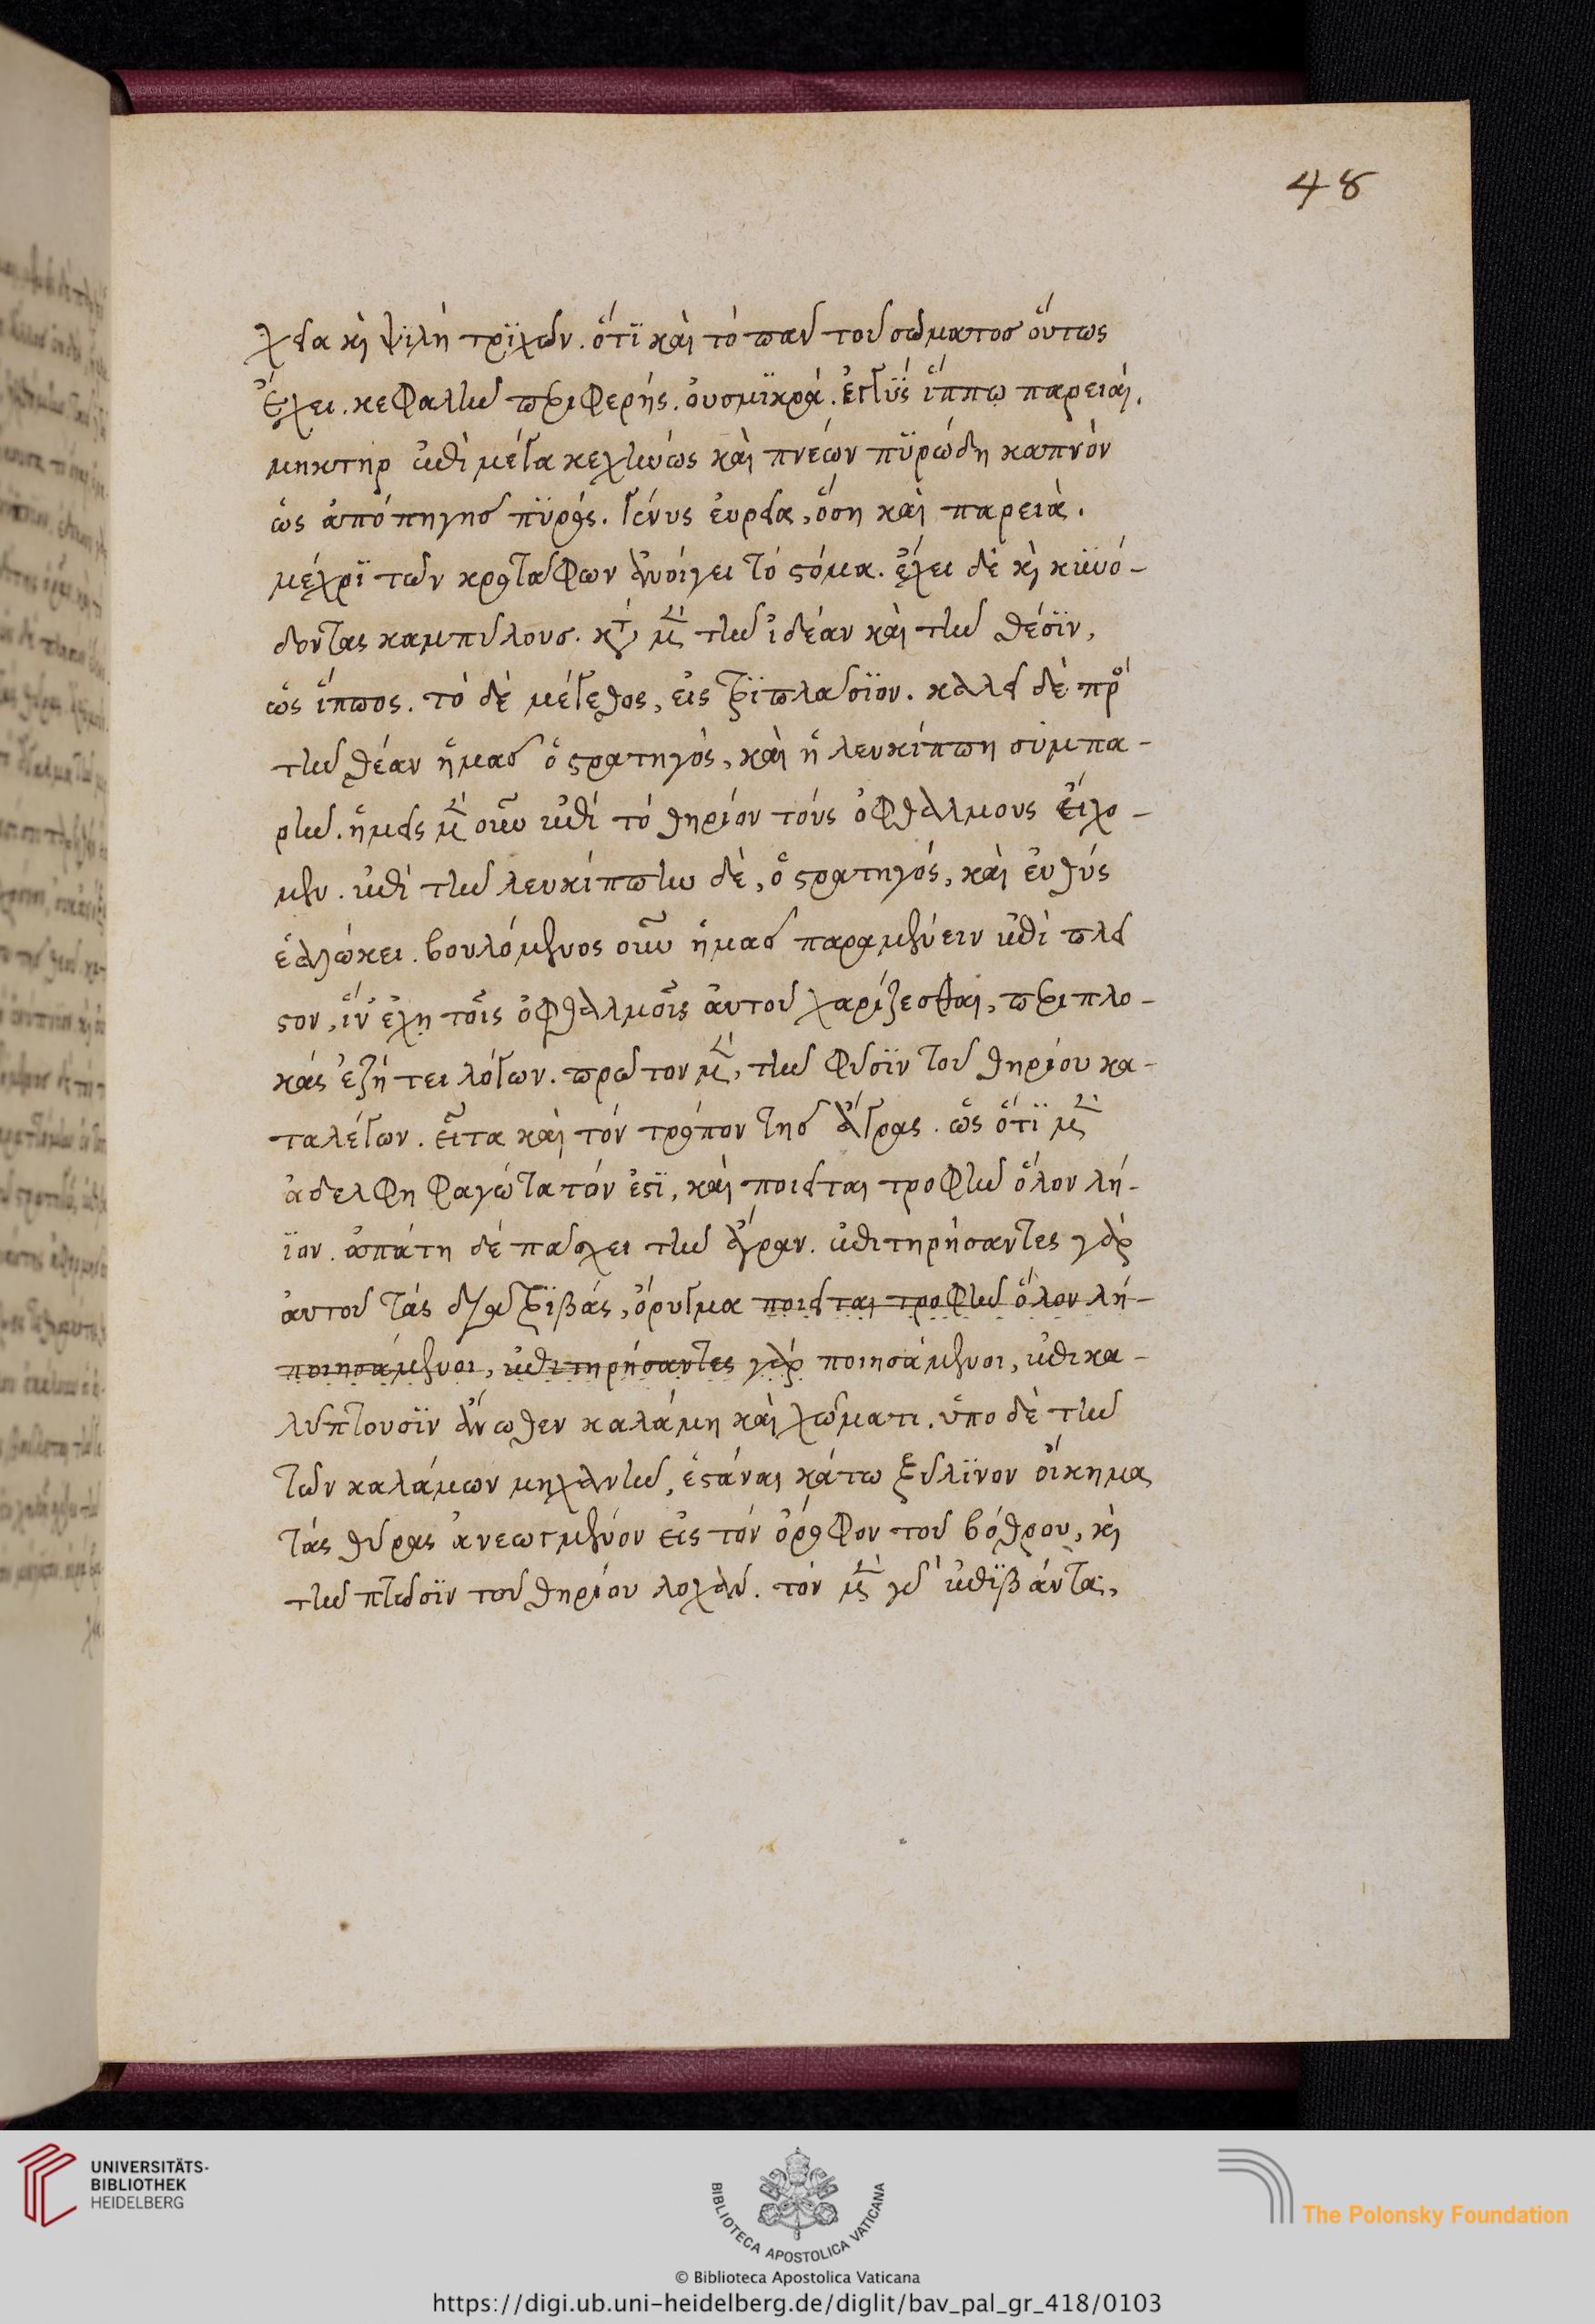 48
χεῖα κὶ ψϊλὴ τρϊχῶν. ὅτϊ καὶ τὸ πᾶν τοῦ σώματοσ οὕτως
ἔχει. κεφαλὴν περιφερής. οὐσμϊκρά. ἐγγΰς ἵππω παρειαί.
μηκτηρ ἐπὶ μέγα κεχηνώς καὶ πνέων πϋρώδη καπνὸν
ὡς ἀπὸ πηγῆσ πϋρός. γένυς εὐρεῖα, ὅση καὶ παρειὰ.
μέχρϊ τῶν κροτάφων ἀνοίγει τὸ στόμα. ἔχει δὲ κὶ κυνό-
δοντας καμπύλουσ. κατὰ μὲν τὴν ἰδέαν καὶ τὴν θέσϊν,
ὡς ἵππος. τὸ δὲ μέγεθος, εἰς τρϊπλάσϊον. καλεῖ δὲ πρὸ
τὴν θέαν ἡμᾶσ ὁ στρατηγὸς, καὶ ἡ λευκίππη συμπα-
ρῆν. ἡμεῖς μὲν οὖν ἐπὶ τὸ θηρίον τοὺς ὀφθαλμους εἴχο-
μεν. ἐπὶ τὴν λευκίππην δὲ, ὁ στρατηγός, καὶ εὐθὺς
ἑαλώκει. βουλόμενος οὖν ἡμᾶσ παραμένειν ἐπὶ πλεῖ
στον, ἵν ἔχη τοῖς ὀφθαλμοῖς αὐτοῦ χαρίζεσθαι, περιπλο-
κάς ἐζήτει λόγων. πρῶτον μὲν, τὴν φύσϊν τοῦ θηρίου κα-
ταλέγων. εἶτα καὶ τὸν τρόπον τῆσ ἄγρας. ὡς ὅτϊ μὲν
ἀδελφη φαγώτατόν ἐστϊ, καὶ ποιεῖται τροφὴν ὅλον λή-
ϊον. ἀπάτη δὲ πάσχει τὴν ἄγραν. ἐπιτηρήσαντες γὰρ
αὐτοῦ τὰς διατρϊβάς, ὄρυγμα ποιεῖται τροφὴν ὅλον λή-
ποιησάμενοι, ἐπιτηρήσαντες γὰρ ποιησάμενοι, ἐπικα-
λύπτουσϊν ἄνωθεν καλάμη καὶ χώματι. ὑπο δὲ τὴν
τῶν καλάμων μηχανὴν, ἑστάναι κάτω ξύλϊνον οἴκημα
τὰς θύρας ἀνεωγμένον εἰς τὸν ὄροφον τοῦ βόθρου, κὶ
τὴν πτῶσϊν τοῦ θηρίου λοχᾶν. τὸν μὲν γὰρ ἐπϊβάντα,
UNIVERSITÄTS-
BIBLIOTHEK
HEIDELBERG
BIBLIOTECA APOSTOLICA VATICANA
The Polonsky Foundation
© Biblioteca Apostolica Vaticana
https://digi.ub.uni-heidelberg.de/diglit/bav_pal_gr_418/0103